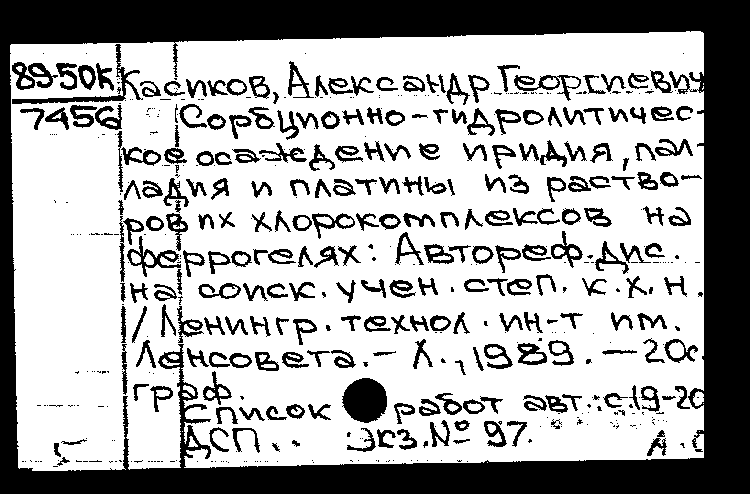 89-50к Касиков, Александр Георгиевич
7456 Сорбционно-гидролитичес-
кое осаждение иридия, пал-
ладия и платины из раство-
ров их хлорокомплексов на
феррогелях: Автореф. дис.
на соиск. учен. степ. к.х.н.
/ Ленингр. технол. ин-т им.
Ленсовета. - Л., 1989. - 20с.
граф.
Список работ авт.: с.19-20
ДСП. . Экз.№ 97.